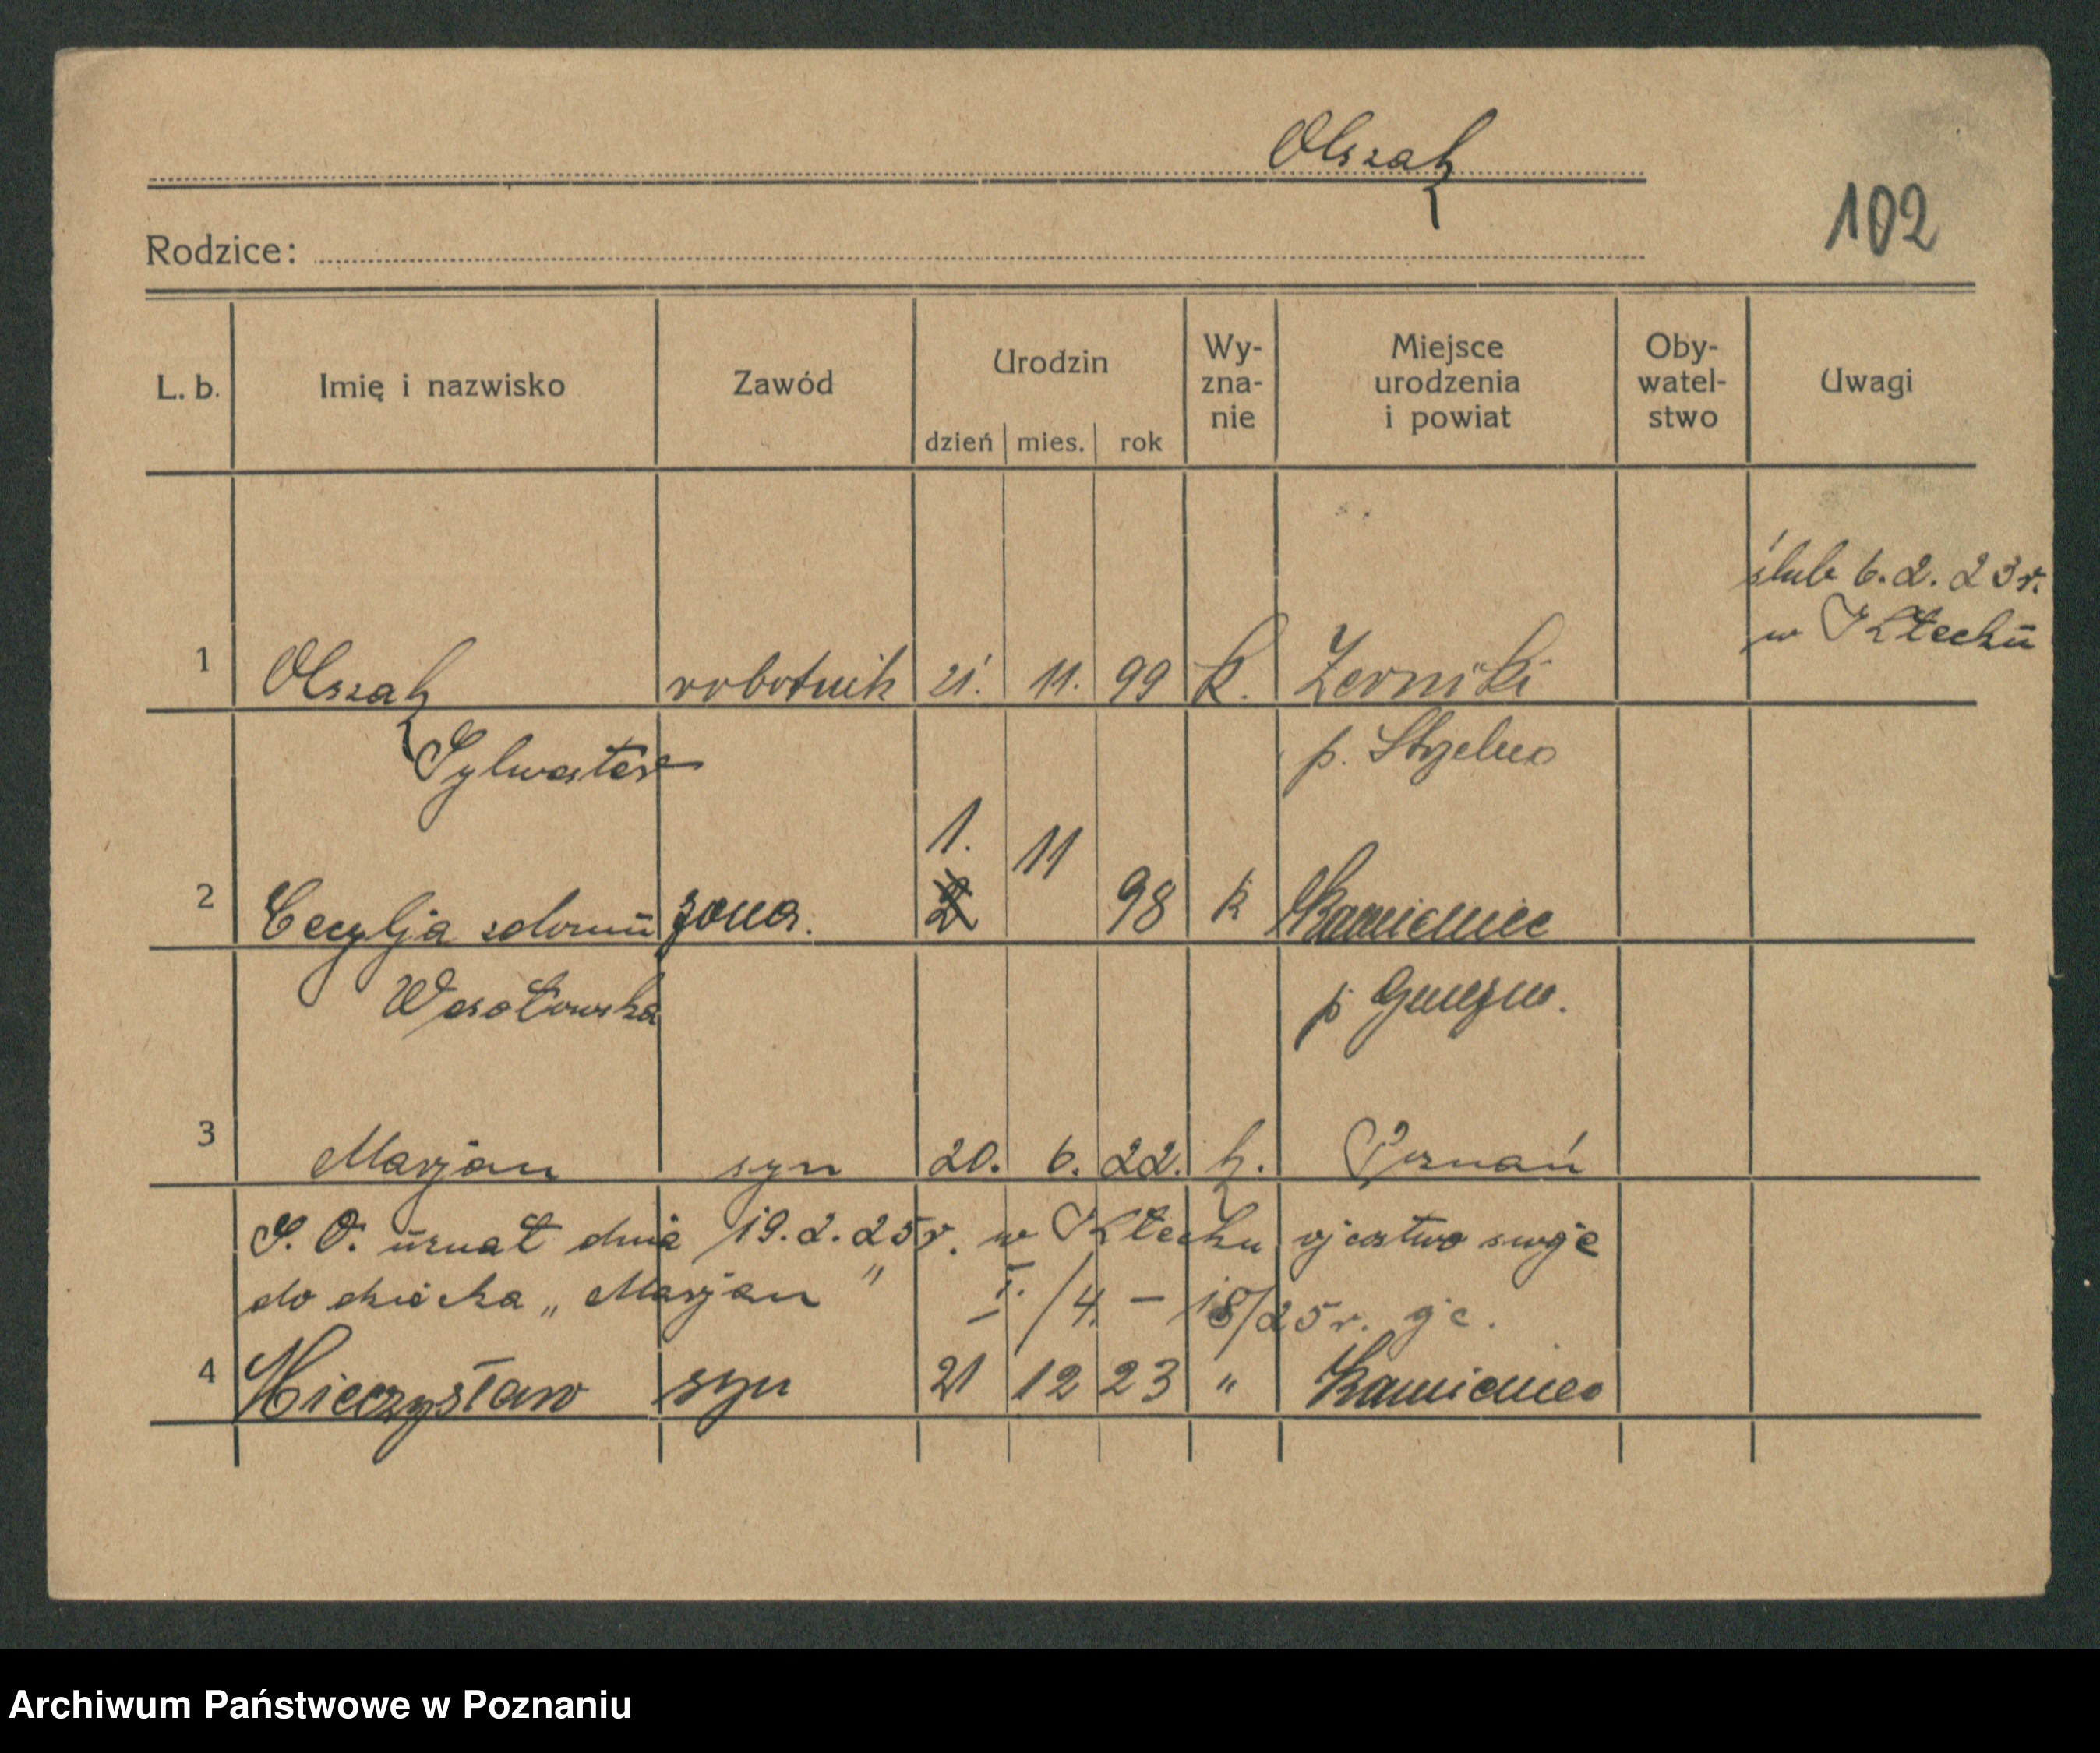 Olszak
102
Rodzice:
L. b. Imię i nazwisko Zawód Urodzin dzień mies. rok Wy-zna-nie Miejsce urodzenia i powiat Oby-watel-stwo Uwagi
ślub 6.2.23 r.
w Kłecku
1 Olszak robotnik 21. 11. 99 k. Żerniki
Sylwester p. Strzelno
1. 11
2 Cecylja z domu żona. 2 98 k Kamieniec
Wesołowska p Gniezno.
3 Marjan syn 20. 6. 22. k. Poznań
S. O. uznał dnia 19.2.25 r. w Kłecku ojcostwo swoje
do dziecka „Marjan" I./4 – 18/25 r.
4 Mieczysław syn 21 12 23 " Kamieniec
Archiwum Państwowe w Poznaniu